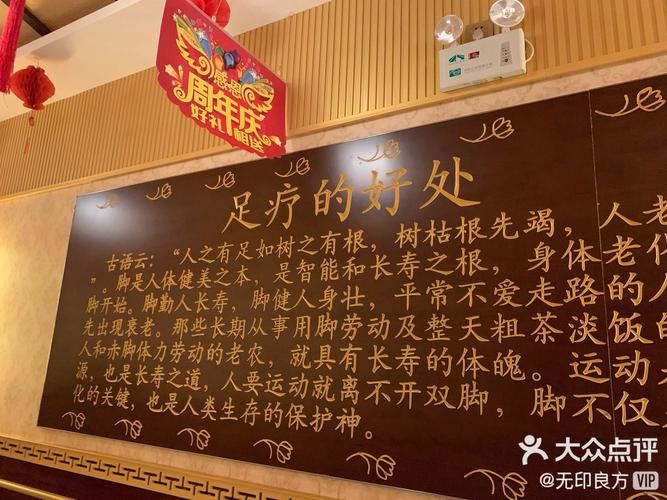 感恩
周年庆
好礼相送
足疗的好处
古语云："人之有足如树之有根，树枯根先竭，人老
"。脚是人体健美之本，是智能和长寿之根，身体老
脚开始。脚勤人长寿，脚健人身壮，平常不爱走路的人
先出现衰老。那些长期从事用脚劳动及整天粗茶淡饭的
人和赤脚体力劳动的老农 就具有长寿的体魄。运动
源，也是长寿之道，人要运动就离不开双脚，脚不仅
化的关键，也是人类生存的保护神。
大众点评
@无印良方 VIP